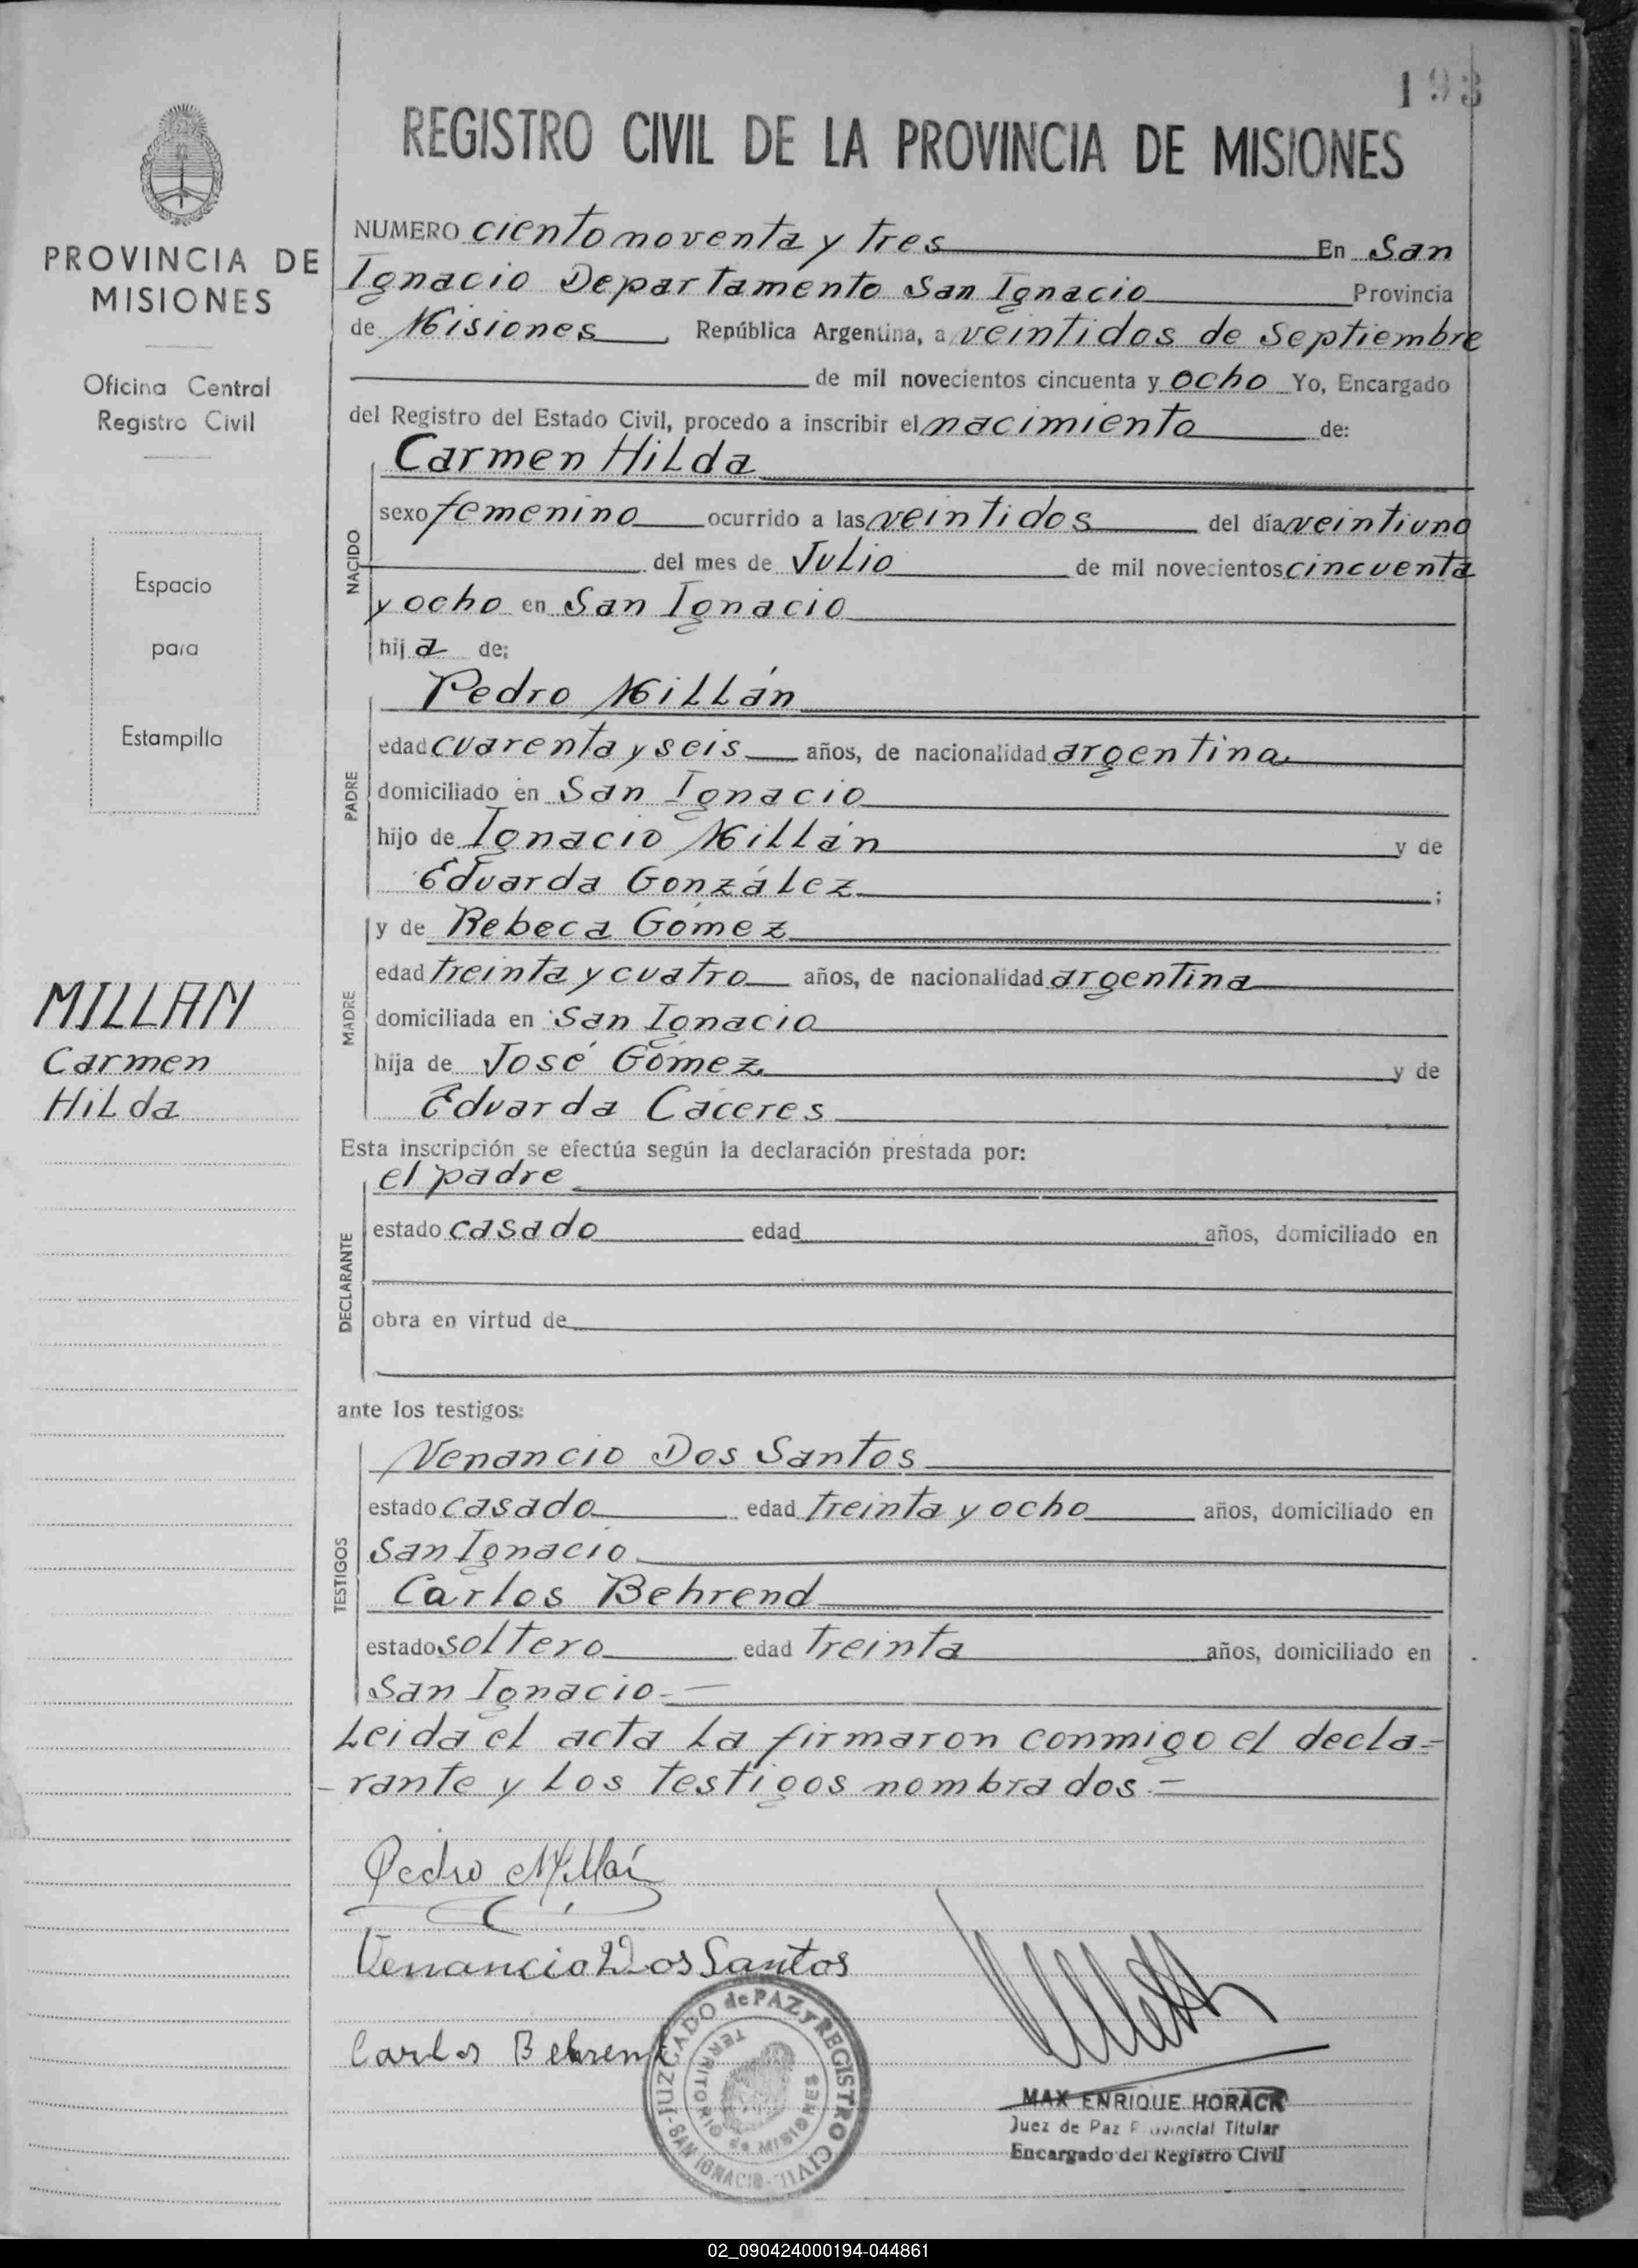 193
REGISTRO CIVIL DE LA PROVINCIA DE MISIONES
PROVINCIA DE
MISIONES
Oficina Central
Registro Civil
Espacio
para
Estampilla
MILLAN
Carmen
Hilda
NUMERO ciento noventa y tres En San
Ignacio Departamento San Ignacio Provincia
de Misiones, República Argentina, a veintidos de Septiembre
de mil novecientos cincuenta y ocho Yo, Encargado
del Registro del Estado Civil, procedo a inscribir el nacimiento de:
NACIDO
Carmen Hilda
sexo femenino ocurrido a las veintidos del día veintiuno
del mes de Julio de mil novecientos cincuenta
y ocho en San Ignacio
hija de:
PADRE
Pedro Millán
edad cuarenta y seis años, de nacionalidad argentina
domiciliado en San Ignacio
hijo de Ignacio Millán y de
Eduarda González;
MADRE
y de Rebeca Gómez
edad treinta y cuatro años, de nacionalidad argentina
domiciliada en San Ignacio
hija de José Gómez y de
Eduarda Caceres
Esta inscripción se efectúa según la declaración prestada por:
DECLARANTE
el padre
estado casado edad años, domiciliado en
obra en virtud de
ante los testigos:
TESTIGOS
Venancio Dos Santos
estado casado edad treinta y ocho años, domiciliado en
San Ignacio
Carlos Behrend
estado soltero edad treinta años, domiciliado en
San Ignacio.-
Leida el acta la firmaron conmigo el decla-
-rante y los testigos nombrados.-
Pedro Millán
Venancio Dos Santos
Carlos Behrend
JUZGADO de PAZ y REGISTRO CIVIL - SAN IGNACIO -
TERRITORIO de MISIONES
MAX ENRIQUE HORACK
Juez de Paz Provincial Titular
Encargado del Registro Civil
02_090424000194-044861